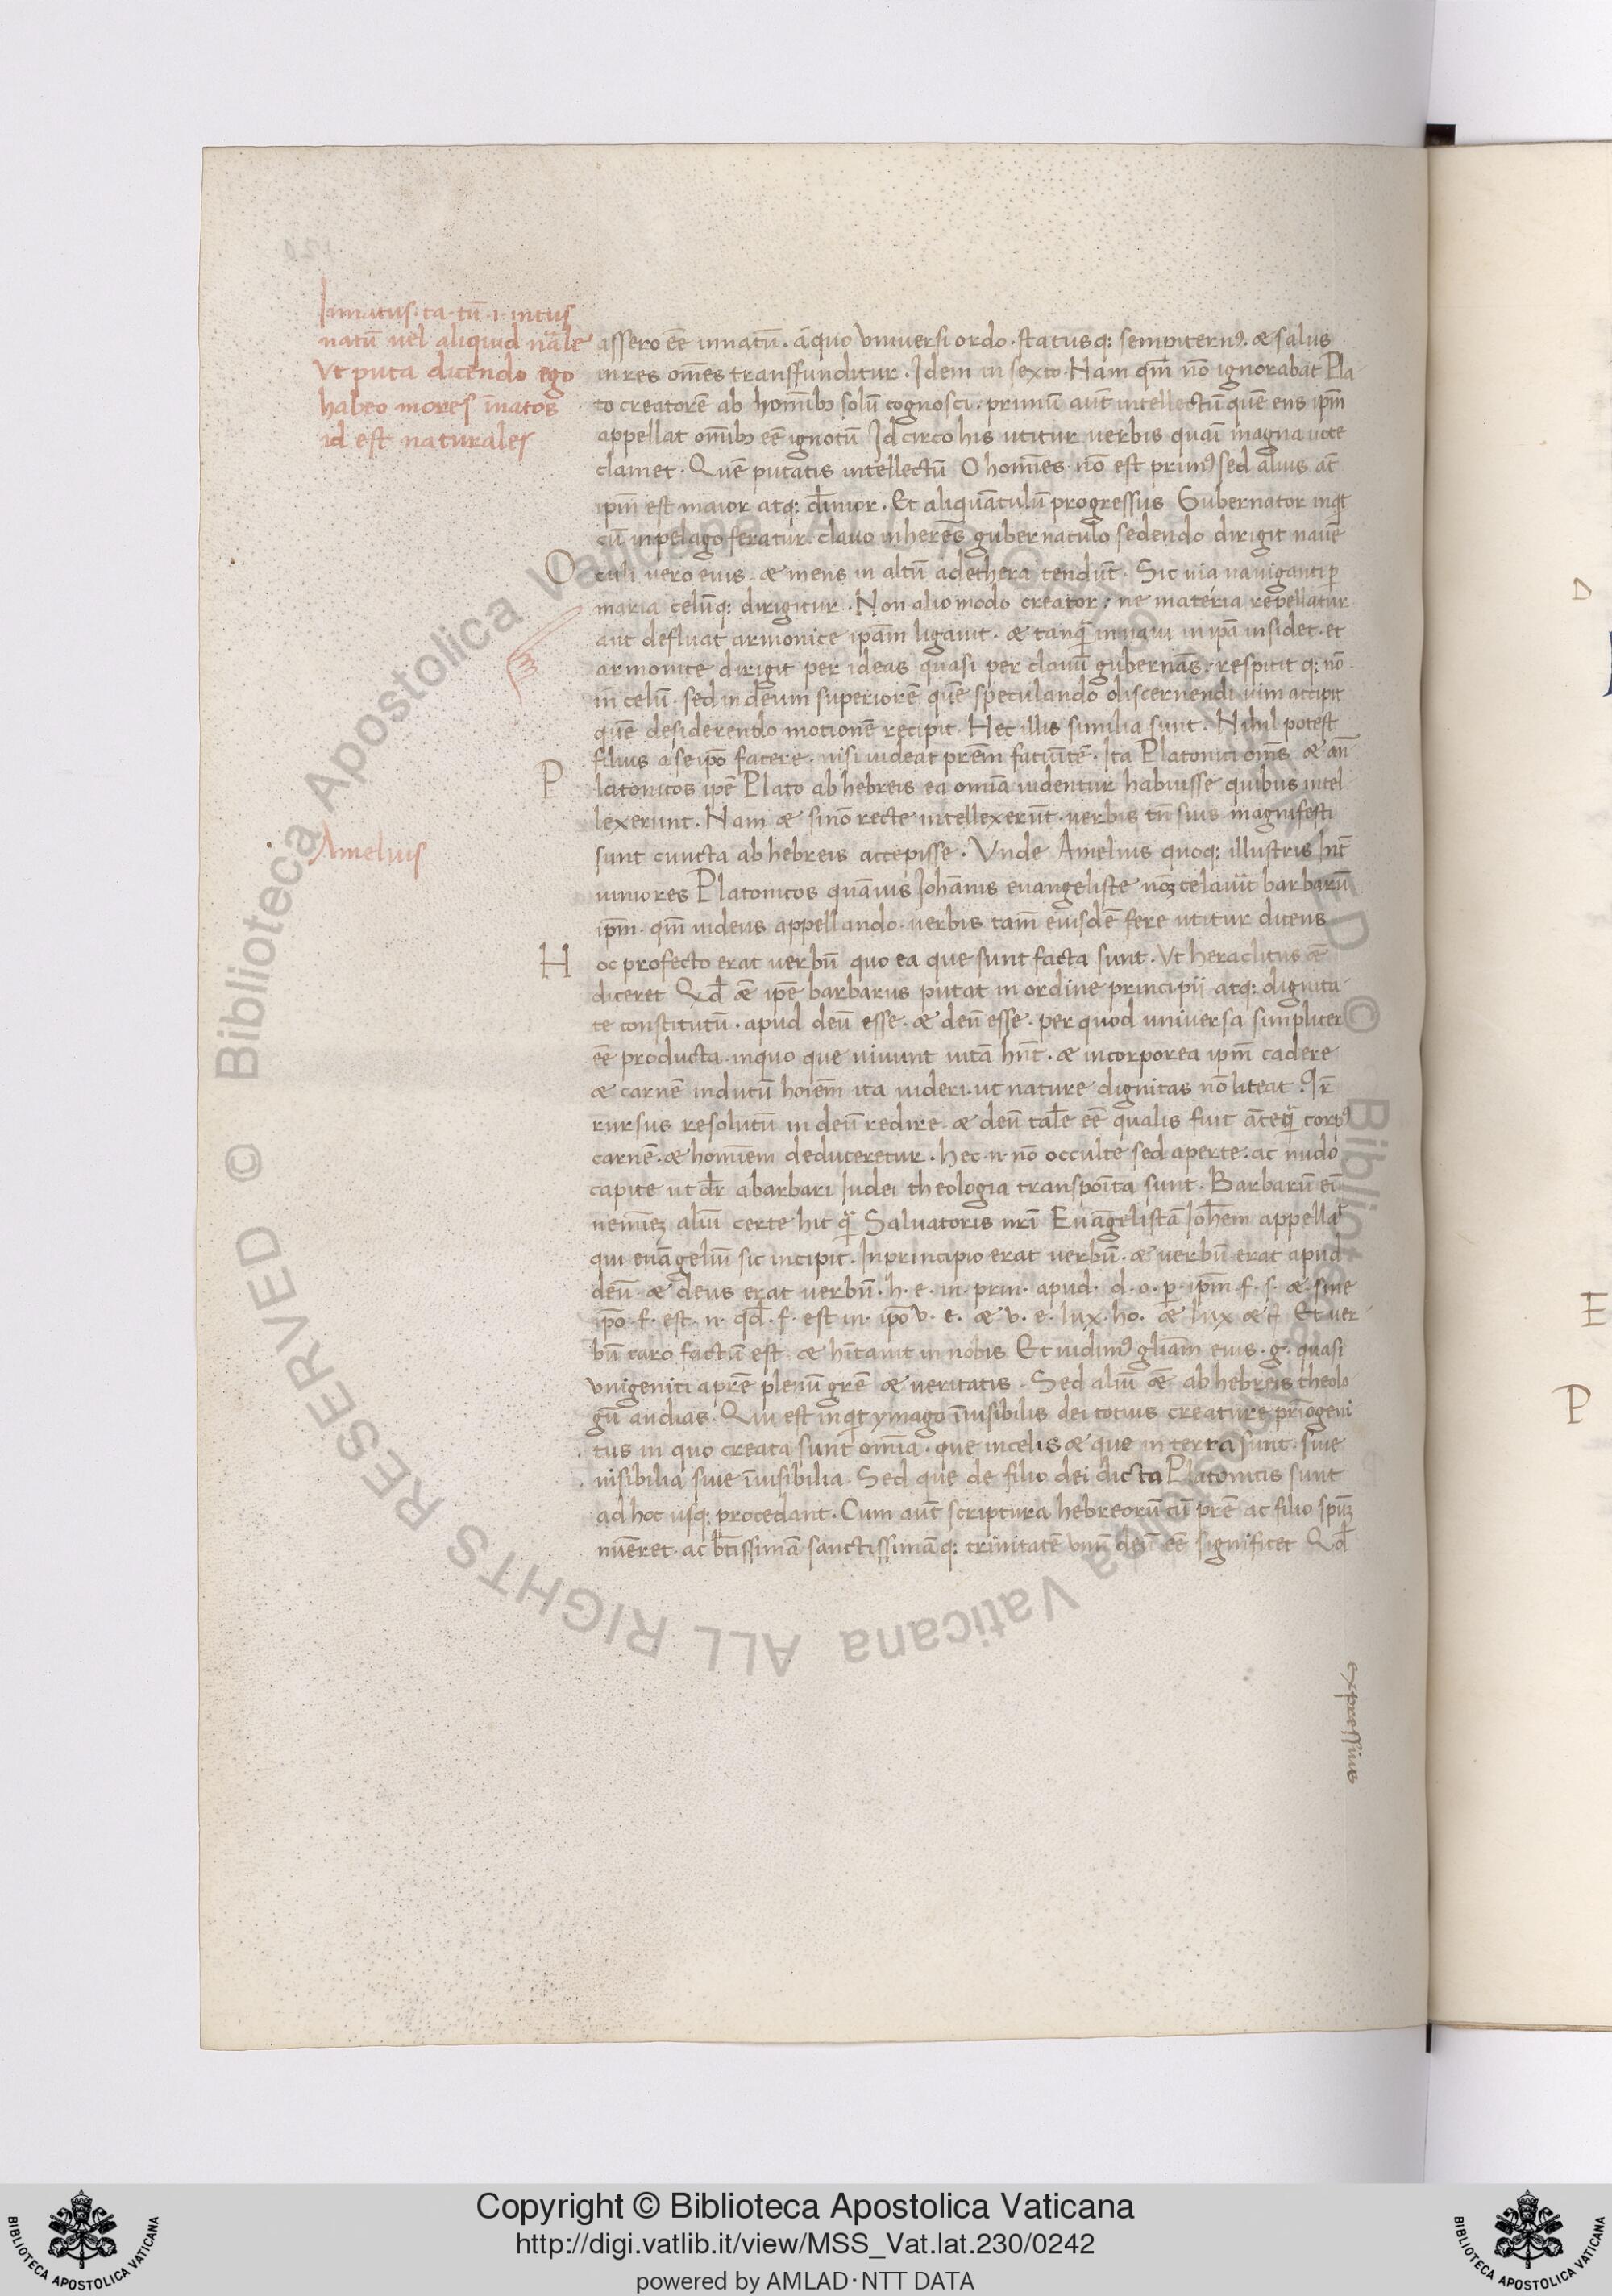 Innatus · ta · tū · i · intus
natū uel aliquid nāle
Vt puta dicendo ego
habeo mores īnatos
id est naturales
assero eē innatū . a quo vniuersi ordo · statusq; sempiternꝰ . æ salus
in res oīnes transffunditur . Idem in sexto · Nam qm̄ nō ignorabat Pla-
to creatorē ab hominibꝫ solū cognosci · primū aūt intellectū quē ens ipm̄
appellat omībꝫ eē ignotū Id circo his utitur uerbis quasi magna uoce
clamet · Quē putatis intellectū O homines · nō est primꝰ sed alius añt
ipm̄ est maior atq; diuinior . Et aliquātulū progressus Gubernator inqt
cū in pelago feratur . clauo inherens gubernaculo sedendo dirigit nauē
O culi uero eius . æ mens in altū ad ethera tendūt . Sic uia nauigantiꝑ
maria celūq; dirigitur . Non alio modo creator : ne materia repellatur
aut defluat armonice ipam̄ ligauit . æ tanq̄ in naui in ipā insidet . et
armonice dirigit per ideas quasi per clauū gubernās : respicit q; nō
in celū · sed in deum superiorē quē speculando discernendi uim accipit
quē desiderendo motionē recipit . Hec illis similia sunt . Nihil potest
filius a se ipō facere . nisi uideat prēm faciētē . Ita Platonici oīns æ an̄
P latonicos ipē Plato ab hebreis ea omīa uidentur habuisse quibus intel
lexerunt . Nam æ si nō recte intellexerūt · uerbis tn̄ suis magnifesti
Amelius
sunt cuncta ab hebreis accepisse . Vnde Amelius quoq; illustris Int̄
iuniores Platonicos quāuis Iohānis euangeliste nōꝫ celauit barbarū
ipm̄ . qm̄ iudeus appellando · uerbis tam̄ eiusdē fere utitur dicens
H oc profecto erat uerbū quo ea que sunt facta sunt . Vt heraclitus ǣ
diceret Qd̄ ǣ ipē barbarus putat in ordine principii atq; dignita-
te constitutū . apud deū esse . æ deū esse . per quod universa simpliciter
eē producta . in quo que uiuunt uitā hn̄t . æ incorporea ipm̄ cadere
æ carnē indutū hoiēm ita uideri . ut nature dignitas nō lateat . Ir̄
rursus resolutū in deū redire . æ deū tale eē qualis fuit āteq̄ corpꝰ
carnē . æ hominem deduceretur . Hec · n · nō occulte sed aperte . ac nudo
capite ut dr̄ a barbari Iudei theologia transpoīta sunt . Barbarū eī
neminēꝫ aliū certe hic q̄ Saluatoris nr̄i Euāgelistā Ioh̄em appellat
qui euāgeliū sic incipit . In principio erat uerbū . æ uerbū erat apud
deū . æ deus erat uerbū . h · e · in · prin · apud · d · o · p · ipm̄ · f · s · æ · sine
ipō · f · est · n · qd̄ · f · est in · ipō v · e . æ v . e . lux . ho . æ lux æ c̄ Et uer-
bū caro factū est . æ hītauit in nobis Et uidimꝰ gliām eius . g · quasi
vnigeniti a prē plenū grē æ ueritatis . Sed aliū ǣ ab hebreis theolo
gū audias . Qui est inqt ymago īuisibilis dei totius creature prīogeni
tus in quo creata sunt omīa . que in celis æ que in terra sunt . siue
uisibilia siue īuisibilia . Sed que de filio dei dicta Platonicis sunt
ad hoc usq; procedant . Cum aūt scriptura hebreorū cū prē ac filio spūꝫ
nūeret . ac btissimā sanctissimāq; trinitatē vnū deū eē significet Qd̄
expressius
D
E
P
Copyright © Biblioteca Apostolica Vaticana
http://digi.vatlib.it/view/MSS_Vat.lat.230/0242
powered by AMLAD·NTT DATA
BIBLIOTECA APOSTOLICA VATICANA
BIBLIOTECA APOSTOLICA VATICANA
© Biblioteca Apostolica Vaticana ALL RIGHTS RESERVED
© Biblioteca Apostolica Vaticana ALL RIGHTS RESERVED